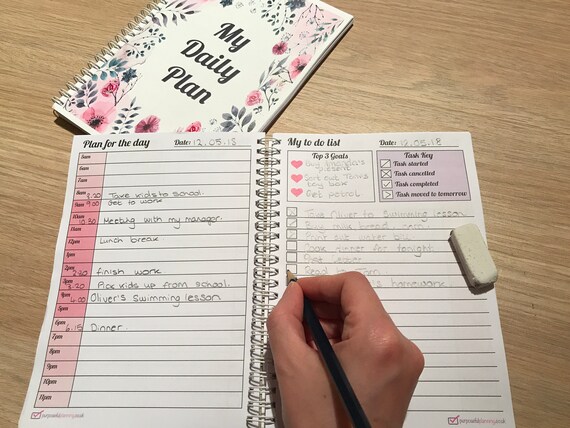 My
Daily
Plan
Plan for the day Date: 12.05.18
5am
6am
7am
8am 8.20 Take kids to school.
9am 9.00 Get to work
10am 10.30 Meeting with my manager.
11am
12pm Lunch break
1pm
2pm 2.30 finish work
3pm 3.20 Pick kids up from school.
4pm 4.00 Oliver's swimming lesson
5pm
6pm 6.15 Dinner
7pm
8pm
9pm
10pm
11pm
purposefulplanning.co.uk
My to do list Date: 12.05.18
Top 3 Goals
present
Sort out
toy box
Get petrol
Task Key
Task started
Task cancelled
Task completed
Task moved to tomorrow
Take Oliver to swimming lesson
Cook dinner for tonight
Post letter
Read
homework
purposefulplanning.co.uk